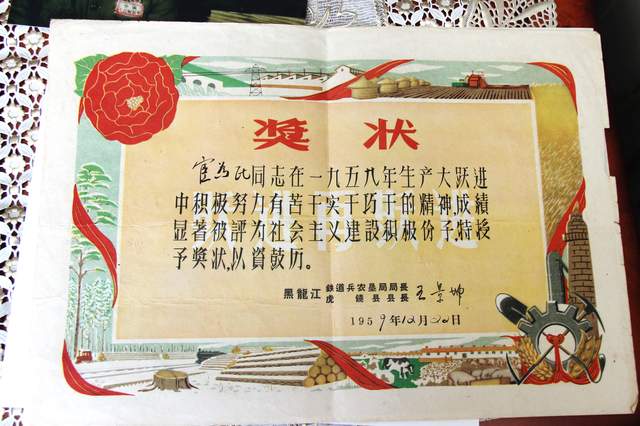 獎狀
同志在一九五九年生产大跃进
中积极努力有苦干实干巧干的精神,成績
显著被評为社会主义建設积极份子,特授
予獎狀,以資鼓历。
黑龍江 鉄道兵农垦局局長
虎饒县县長 王景坤
1959年12月20日